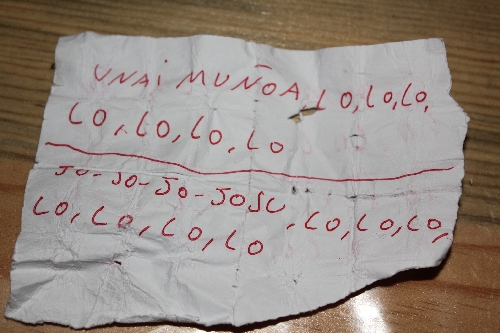 UNAI MUÑOA, LO, LO, LO,
LO, LO, LO, LO
JO-JO-JO-JOSU, LO, LO, LO,
LO, LO, LO, LO